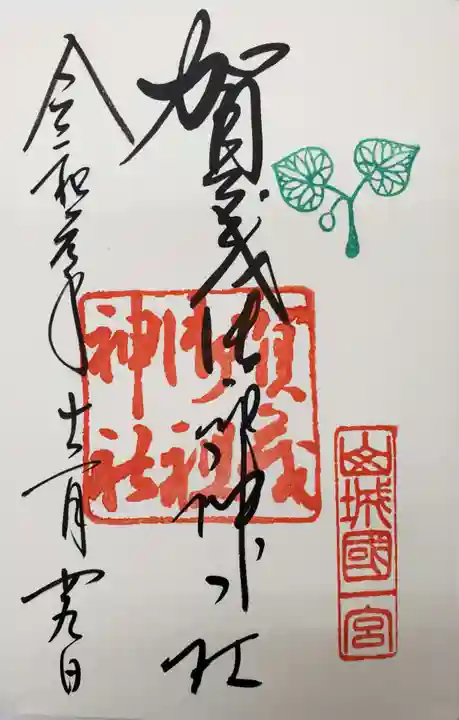 山城國一宮
賀茂御祖神社
賀茂御祖神社
令和元年十二月廿九日